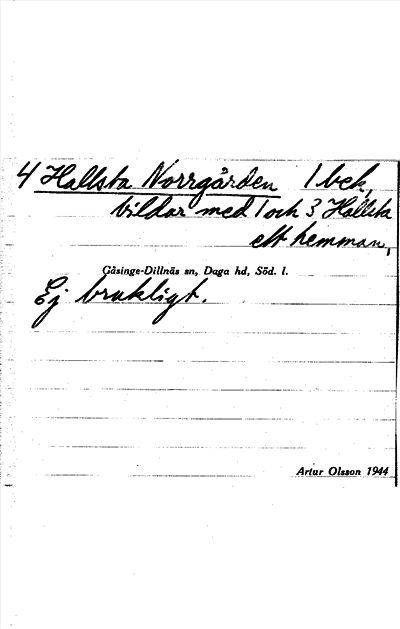 4 Hallsta Norrgården 1 bek.
bildar med 1 och 3 Hallsta
ett hemman,
Gåsinge-Dillnäs sn, Daga hd, Söd. l.
Ej brukligt.
Artur Olsson 1944